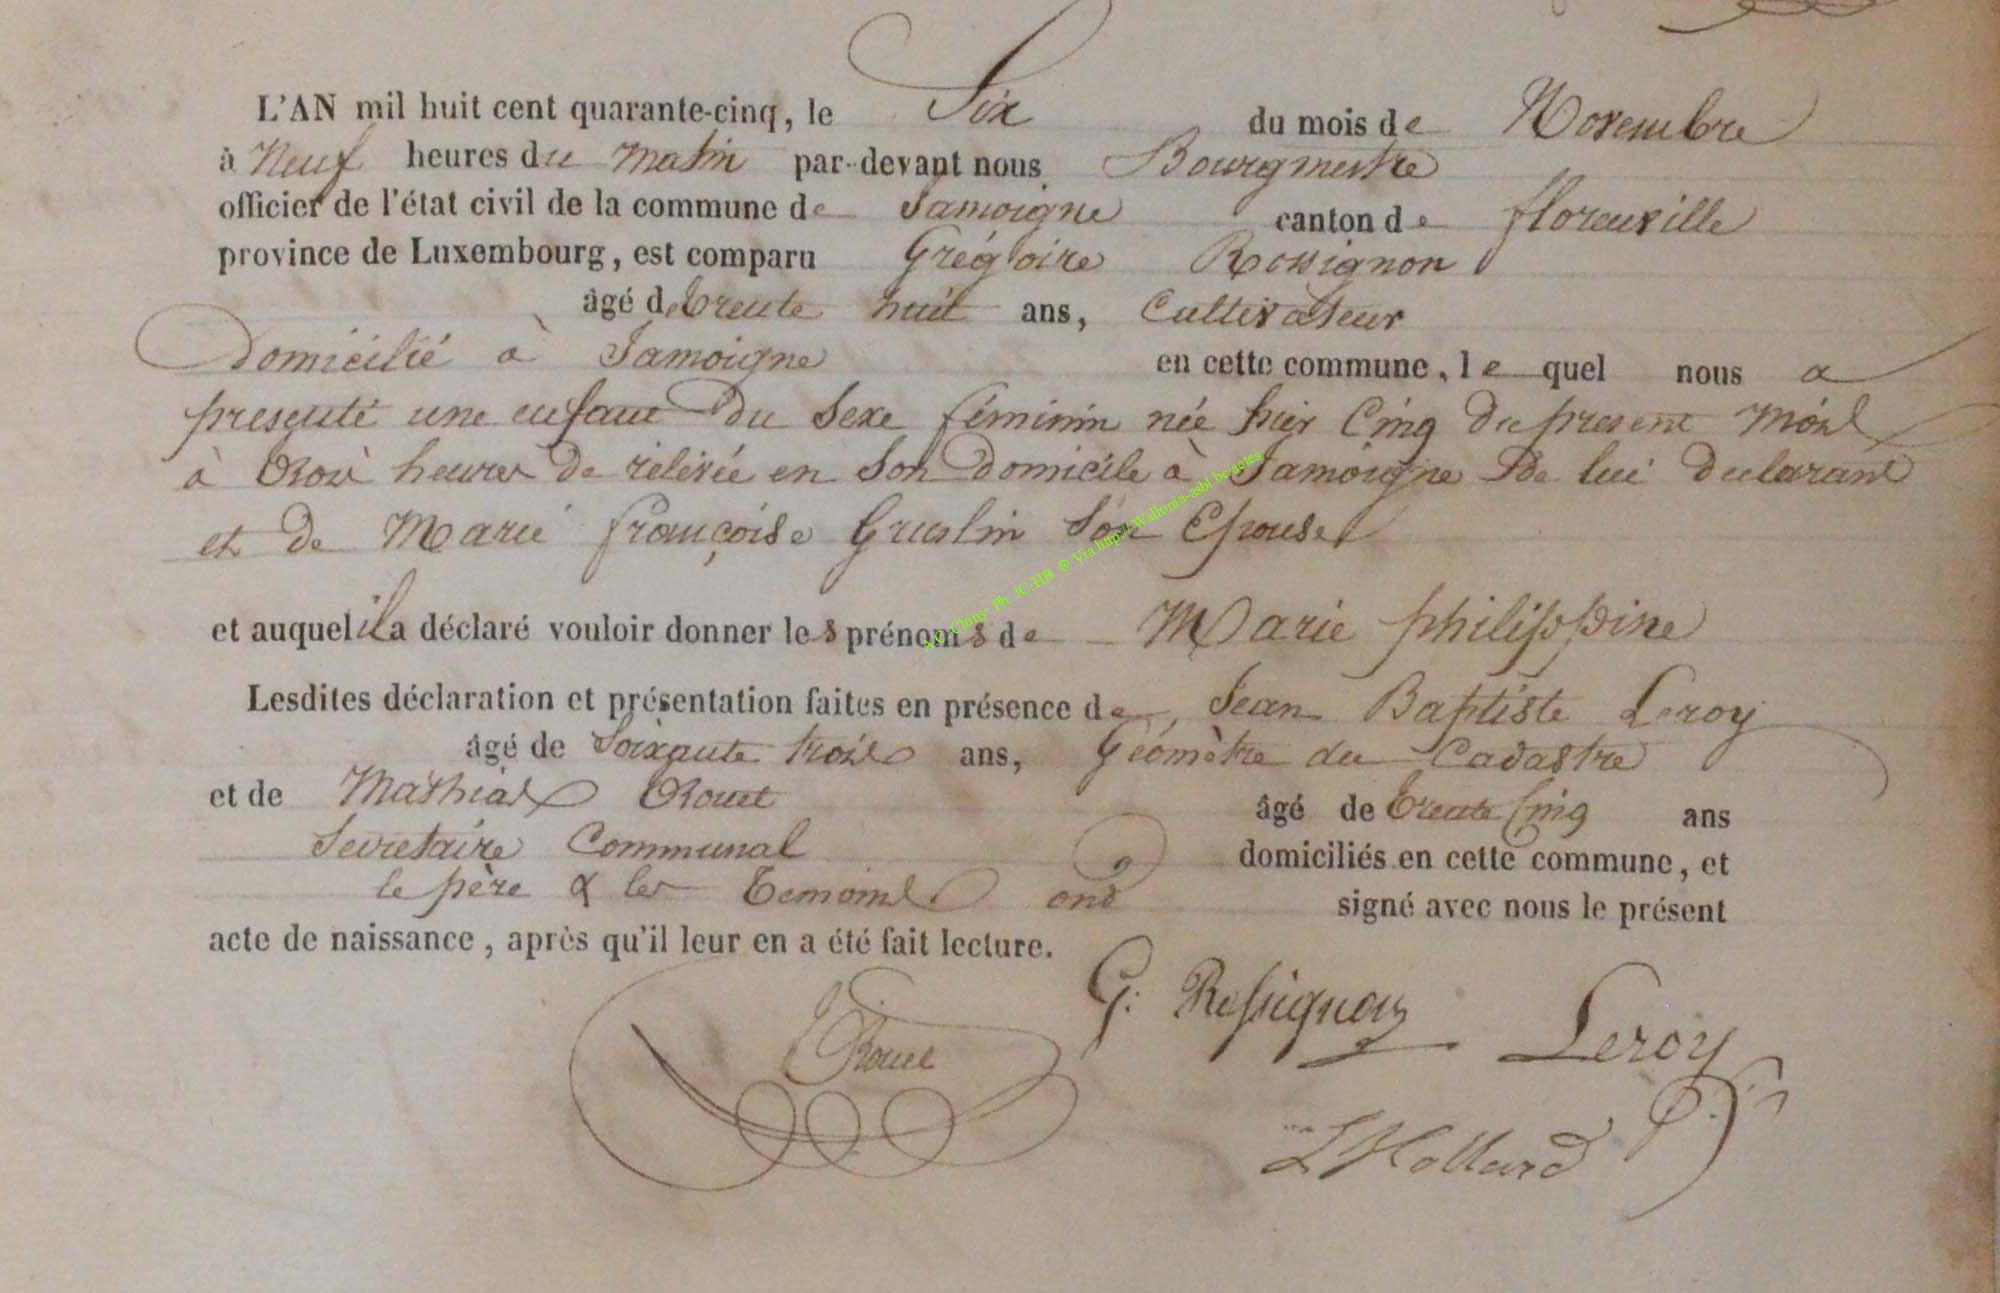 L'AN mil huit cent quarante-cinq, le Six du mois de Novembre
à Neuf heures du matin par-devant nous Bourgmestre
officier de l'état civil de la commune de Jamoigne canton de florenville
province de Luxembourg, est comparu Grégoire Rossignon
âgé de trente huit ans, Cultivateur
Domicilié à Jamoigne en cette commune, le quel nous a
presenté une enfant Du Sexe féminin née hier Cinq du present Mois
à heures de relevée en Son Domicile à Jamoigne De lui declarant
et de Marie françoise Son Epouse
et auquel il a déclaré vouloir donner les prénoms de Marie philippine
Lesdites déclaration et présentation faites en présence de Jean Baptiste Leroy
âgé de Soixante trois ans, Géomètre du Cadastre
et de Mathias Rouet âgé de trente Cinq ans
Secretaire Communal domiciliés en cette commune, et
le père & les Temoins ont signé avec nous le présent
acte de naissance, après qu'il leur en a été fait lecture.
G. Rossignon
Rouet
Leroy
A.C. Chiny Ph JC/HB @ Via http://Wallonia-asbl.be/actes